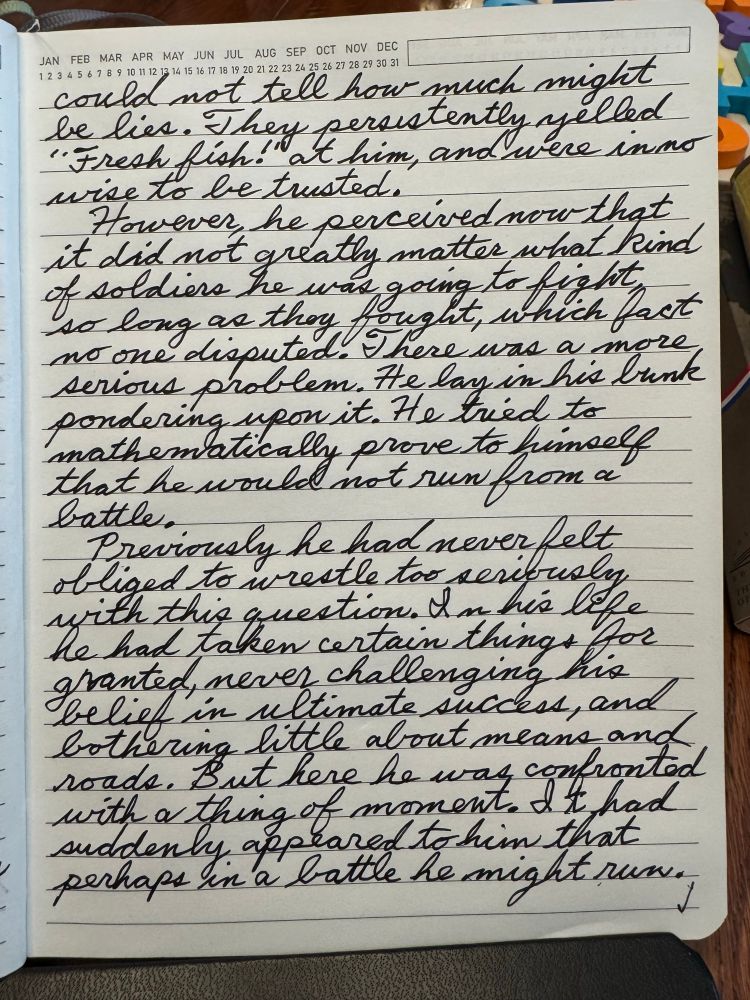 JAN FEB MAR APR MAY JUN JUL AUG SEP OCT NOV DEC
1 2 3 4 5 6 7 8 9 10 11 12 13 14 15 16 17 18 19 20 21 22 23 24 25 26 27 28 29 30 31
could not tell how much might
be lies. They persistently yelled
"Fresh fish!" at him, and were in no
wise to be trusted.
However, he perceived now that
it did not greatly matter what kind
of soldiers he was going to fight,
so long as they fought, which fact
no one disputed. There was a more
serious problem. He lay in his bunk
pondering upon it. He tried to
mathematically prove to himself
that he would not run from a
battle.
Previously he had never felt
obliged to wrestle too seriously
with this question. In his life
he had taken certain things for
granted, never challenging his
belief in ultimate success, and
bothering little about means and
roads. But here he was confronted
with a thing of moment. It had
suddenly appeared to him that
perhaps in a battle he might run.